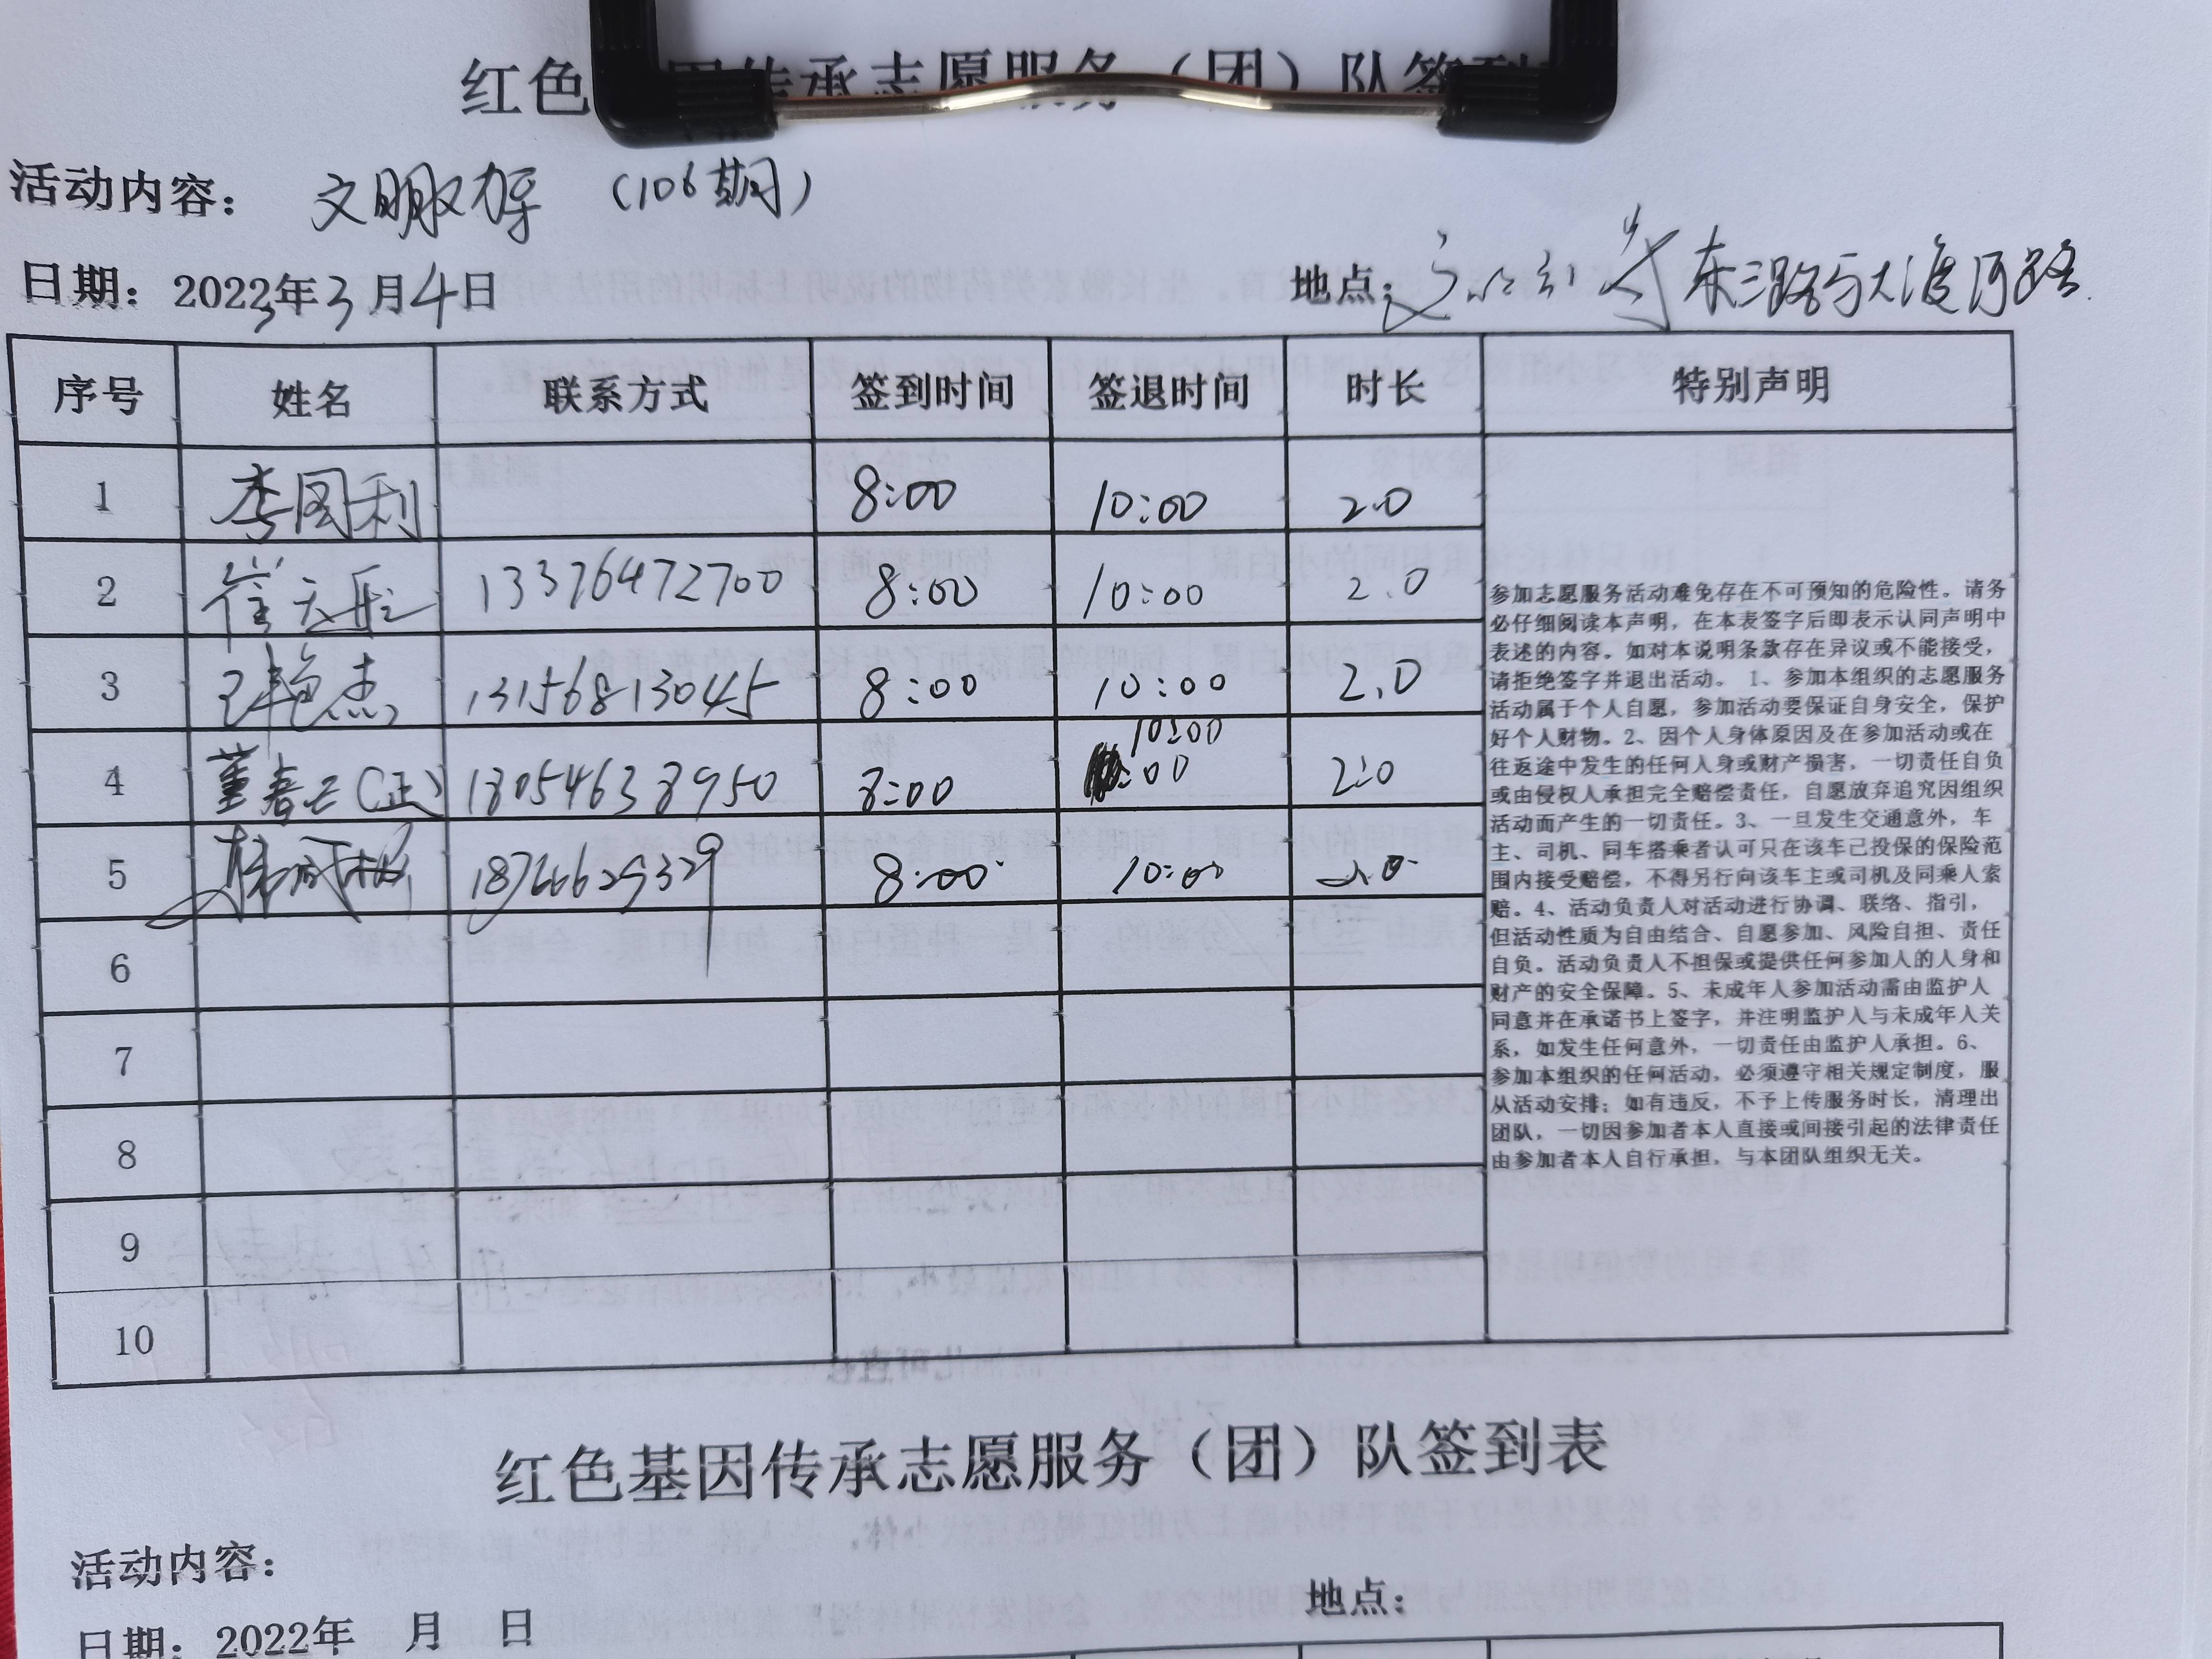 红色基因传承志愿服务（团）队签到
活动内容： 文明 （106期）
日期：2023年3月4日 地点： 东三路与大渡河路
序号 姓名 联系方式 签到时间 签退时间 时长 特别声明
1 李国利 8:00 10:00 2.0
2 13376472700 8:00 10:00 2.0
3 王艳杰 13156813045 8:00 10:00 2.0
10:00
4 董春 (正) 18054638950 8:00 :00 2.0
5 18766629329 8:00 10:00 2.0
6
7
8
9
10
参加志愿服务活动难免存在不可预知的危险性。请务
必仔细阅读本声明，在本表签字后即表示认同声明中
表述的内容。如对本说明条款存在异议或不能接受，
请拒绝签字并退出活动。 1、参加本组织的志愿服务
活动属于个人自愿，参加活动要保证自身安全，保护
好个人财物。2、因个人身体原因及在参加活动或在
往返途中发生的任何人身或财产损害，一切责任自负
或由侵权人承担完全赔偿责任，自愿放弃追究因组织
活动而产生的一切责任。3、一旦发生交通意外，车
主、司机、同车搭乘者认可只在该车已投保的保险范
围内接受赔偿，不得另行向该车主或司机及同乘人索
赔。4、活动负责人对活动进行协调、联络、指引，
但活动性质为自由结合、自愿参加、风险自担、责任
自负。活动负责人不担保或提供任何参加人的人身和
财产的安全保障。5、未成年人参加活动需由监护人
同意并在承诺书上签字，并注明监护人与未成年人关
系，如发生任何意外，一切责任由监护人承担。6、
参加本组织的任何活动，必须遵守相关规定制度，服
从活动安排；如有违反，不予上传服务时长，清理出
团队，一切因参加者本人直接或间接引起的法律责任
由参加者本人自行承担，与本团队组织无关。
红色基因传承志愿服务（团）队签到表
活动内容：
日期：2022年 月 日 地点：